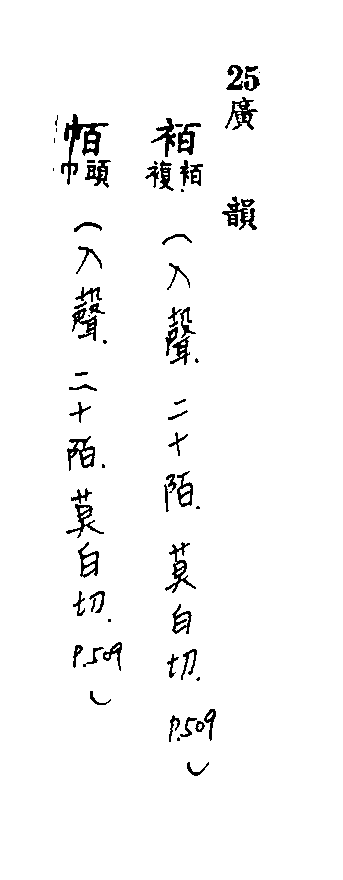 25廣韻
袹複袹（入聲.二十陌.莫白切.P.509）
帞頭巾（入聲.二十陌.莫白切.P.509）